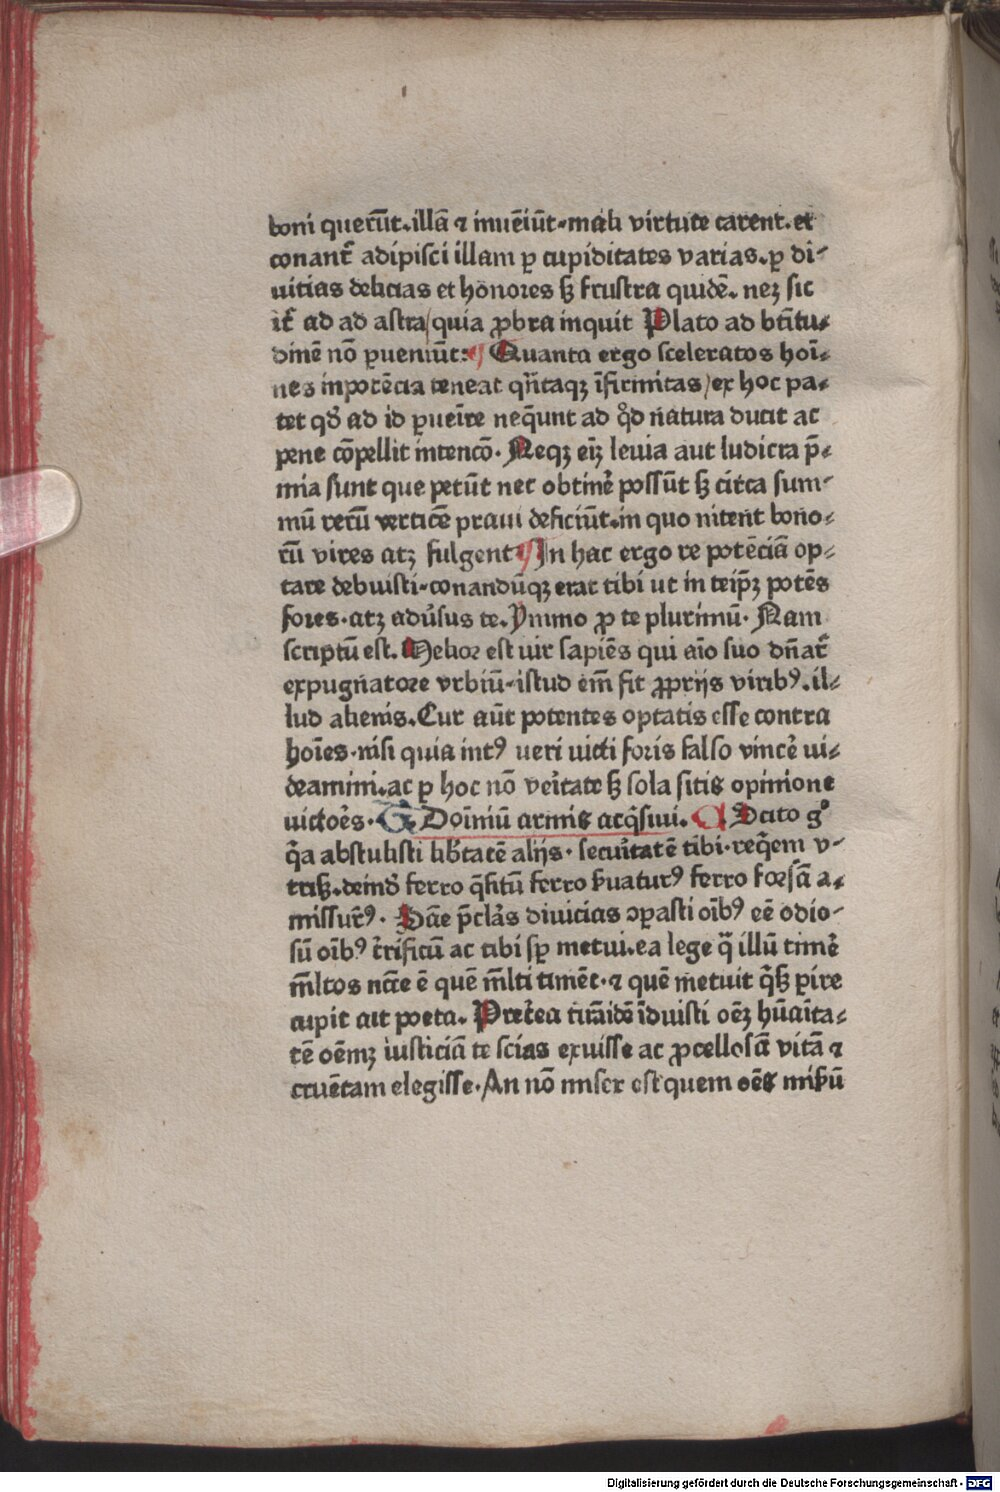 boni querūt.illā ⁊ inuēiūt-mali virtute carent.et
conant̄ adipisci illam ꝑ cupiditates varias.ꝑ di-
uitias delicias et honores sꝫ frustra quidē. neꝫ sic
it̄ ad ad astra/quia ꝓbra inquit Plato ad bt̄itu-
dinē nō ꝑueniūt:¶ Quanta ergo sceleratos hoī-
nes inpotēcia teneat qn̄taqꝫ īfirmitas/ex hoc pa-
tet qd̄ ad id ꝑueīre neq̄unt ad qd̄ natura ducit ac
pene cōpellit intencō. Neqꝫ eīꝫ leuia aut ludicra p̄-
mia sunt que petūt nec obtinē possūt sꝫ circa sum-
mū rerū verticē praui deficiūt.in quo nitent bono-
rū vires atꝫ fulgent ¶ In hac ergo re potēciā op-
tare debuisti-conandūqꝫ erat tibi ut in teip̄ꝫ potēs
fores.atꝫ adūsus te.Ymmo ꝓ te plurimū. Nam
scriptū est. Melior est uir sapiēs qui aīo suo dn̄at̄
expugnatore vrbiū-istud em̄ fit ꝓprijs viribꝰ.il-
lud alienis.Cur aūt potentes optatis esse contra
hoīes.nisi quia intꝰ ueri uicti foris falso vincē ui-
deamini.ac ꝑ hoc nō vēitate sꝫ sola sitis opinione
uictoēs. G. Doīniū armis acq̄siui. ¶ Dcito gͦ
q̄a abstulisti lib̄tatē alijs. secuītatē tibi.req̄em v-
trisꝫ.deind̄ ferro q̄sitū ferro ẜuaturꝰ ferro forsā a-
missur̄ꝰ. Dāe p̄clās diuicias ɔꝑasti oībꝰ eē odio-
sū oībꝰ t̄rificū ac tibi sꝑ metui.ea lege q̄ illū timē
m̄ltos ncēe ē quē m̄lti timēt.⁊ quē metuit q̄sꝫ ꝑire
cupit ait poeta. Pretēa tirāidē īduisti oēꝫ hūaīta-
tē oēmꝫ iusticiā te scias exuisse ac ꝓcellosā vitā ⁊
cruētam elegisse.An nō miser est quem oēs miẜū
Digitalisierung gefördert durch die Deutsche Forschungsgemeinschaft - DFG